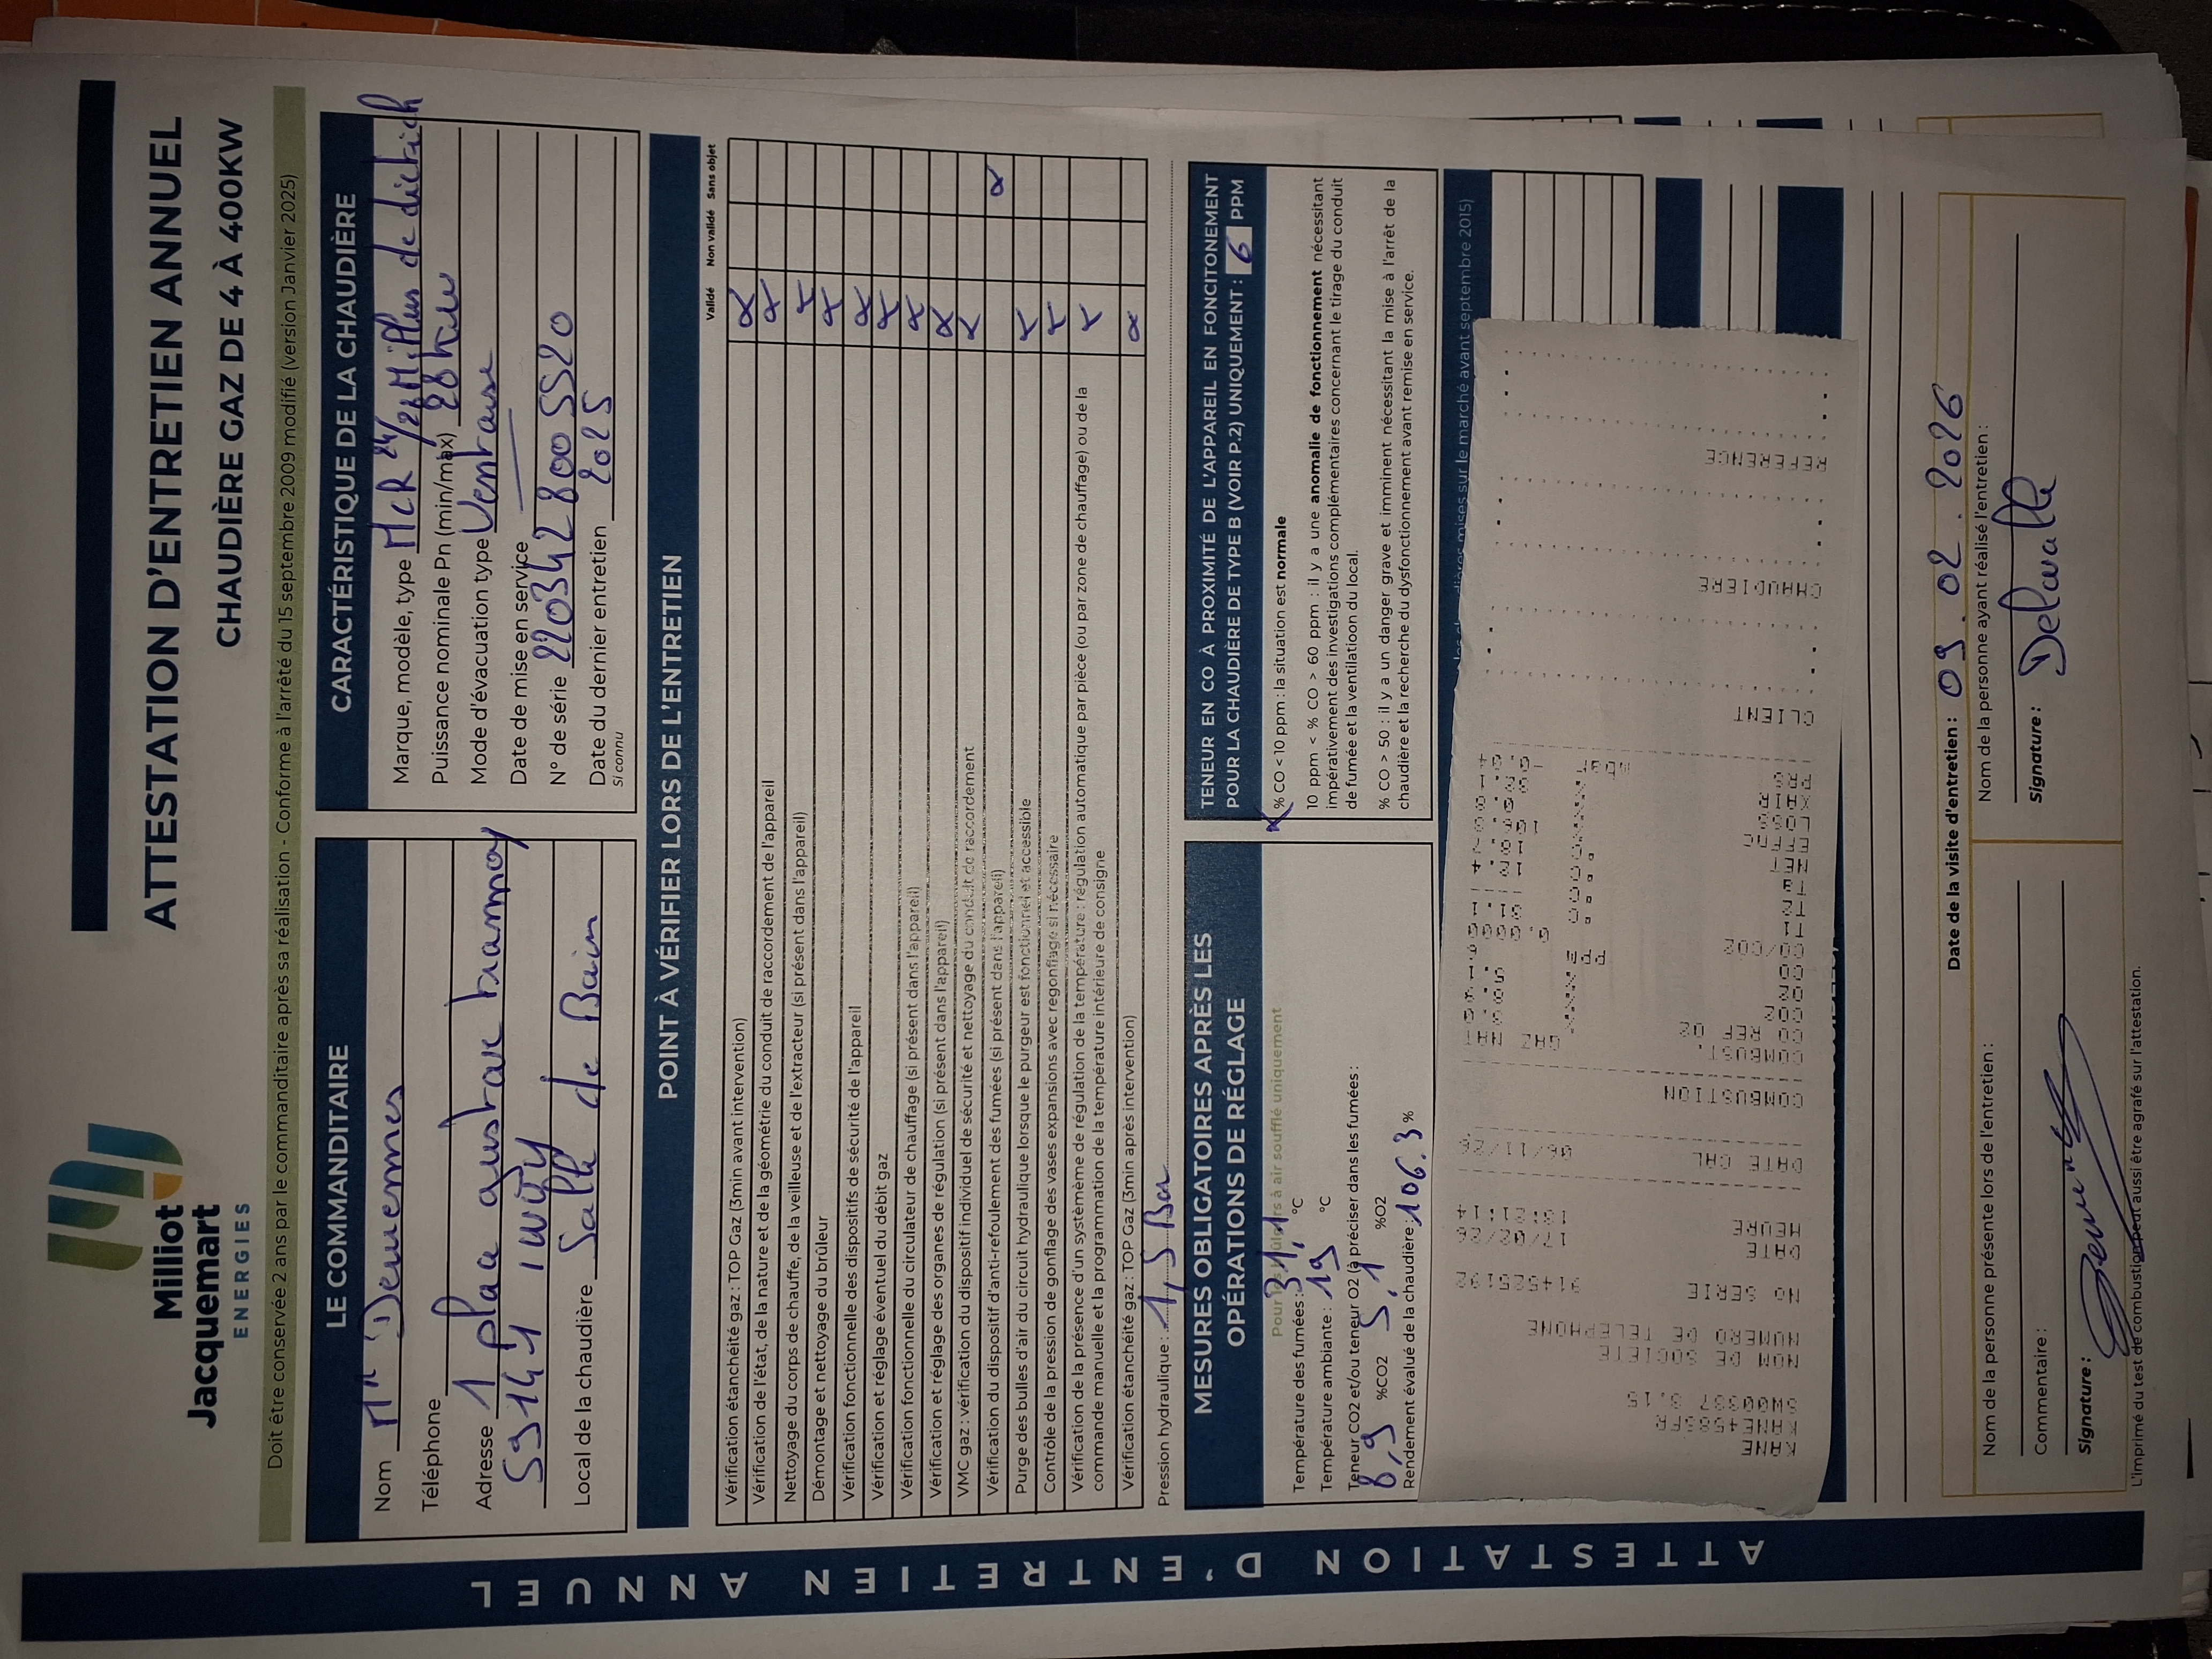 Milliot
Jacquemart
ENERGIES
ATTESTATION D'ENTRETIEN ANNUEL
CHAUDIÈRE GAZ DE 4 À 400KW
Doit être conservée 2 ans par le commanditaire après sa réalisation - Conforme à l'arrêté du 15 septembre 2009 modifié (version Janvier 2025)
LE COMMANDITAIRE
Nom Mr Demennes
Téléphone
Adresse 1 place gustave
59141 iwuy
Local de la chaudière Salle de Bain
CARACTÉRISTIQUE DE LA CHAUDIÈRE
Marque, modèle, type MCR 24/28 Mi Plus de dietrich
Puissance nominale Pn (min/max) 28 kw
Mode d'évacuation type Ventouse
Date de mise en service
N° de série 2203428005520
Date du dernier entretien 2025
Si connu
POINT À VÉRIFIER LORS DE L'ENTRETIEN
Validé Non validé Sans objet
Vérification étanchéité gaz : TOP Gaz (3min avant intervention) x
Vérification de l'état, de la nature et de la géométrie du conduit de raccordement de l'appareil x
Nettoyage du corps de chauffe, de la veilleuse et de l'extracteur (si présent dans l'appareil) x
Démontage et nettoyage du brûleur x
Vérification fonctionnelle des dispositifs de sécurité de l'appareil x
Vérification et réglage éventuel du débit gaz x
Vérification fonctionnelle du circulateur de chauffage (si présent dans l'appareil) x
Vérification et réglage des organes de régulation (si présent dans l'appareil) x
VMC gaz : vérification du dispositif individuel de sécurité et nettoyage du conduit de raccordement x
Vérification du dispositif d'anti-refoulement des fumées (si présent dans l'appareil) x
Purge des bulles d'air du circuit hydraulique lorsque le purgeur est fonctionnel et accessible x
Contrôle de la pression de gonflage des vases expansions avec regonflage si nécessaire x
Vérification de la présence d'un systèmème de régulation de la température : régulation automatique par pièce (ou par zone de chauffage) ou de la
commande manuelle et la programmation de la température intérieure de consigne x
Vérification étanchéité gaz : TOP Gaz (3min après intervention) x
Pression hydraulique : 1,5 Bar
MESURES OBLIGATOIRES APRÈS LES
OPÉRATIONS DE RÉGLAGE
à air soufflé uniquement
Température des fumées : 31,1 °C
Température ambiante : 19 °C
Teneur CO2 et/ou teneur O2 (à préciser dans les fumées :
8,9 %CO2 5,1 %O2
Rendement évalué de la chaudière : 106.3 %
TENEUR EN CO À PROXIMITÉ DE L'APPAREIL EN FONCITONEMENT
POUR LA CHAUDIÈRE DE TYPE B (VOIR P.2) UNIQUEMENT : 6 PPM
x % CO < 10 ppm : la situation est normale
10 ppm < % CO > 60 ppm : il y a une anomalie de fonctionnement nécessitant
impérativement des investigations complémentaires concernant le tirage du conduit
de fumée et la ventilatioon du local.
% CO > 50 : il y a un danger grave et imminent nécessitant la mise à l'arrêt de la
chaudière et la recherche du dysfonctionnement avant remise en service.
mises sur le marché avant septembre 2015)
KANE
KANE458SFR
NOM DE SOCIETE
NUMERO DE TELEPHONE
NO SERIE
DATE 17/02/26
HEURE
DATE CAL 06/11/26
COMBUSTION
COMBUST. GAZ NAT
CO REF O2
CO2
OXY
CO
CO/CO2
T1
T2
NET
EFF
LOSS
XAIR
PRS mbar
CLIENT
CHAUDIERE
REFERENCE
Date de la visite d'entretien : 09.02.2026
Nom de la personne présente lors de l'entretien :
Commentaire :
Signature :
Nom de la personne ayant réalisé l'entretien :
Signature : Delavalle
L'imprimé du test de combustion peut aussi être agrafé sur l'attestation.
ATTESTATION D'ENTRETIEN ANNUEL